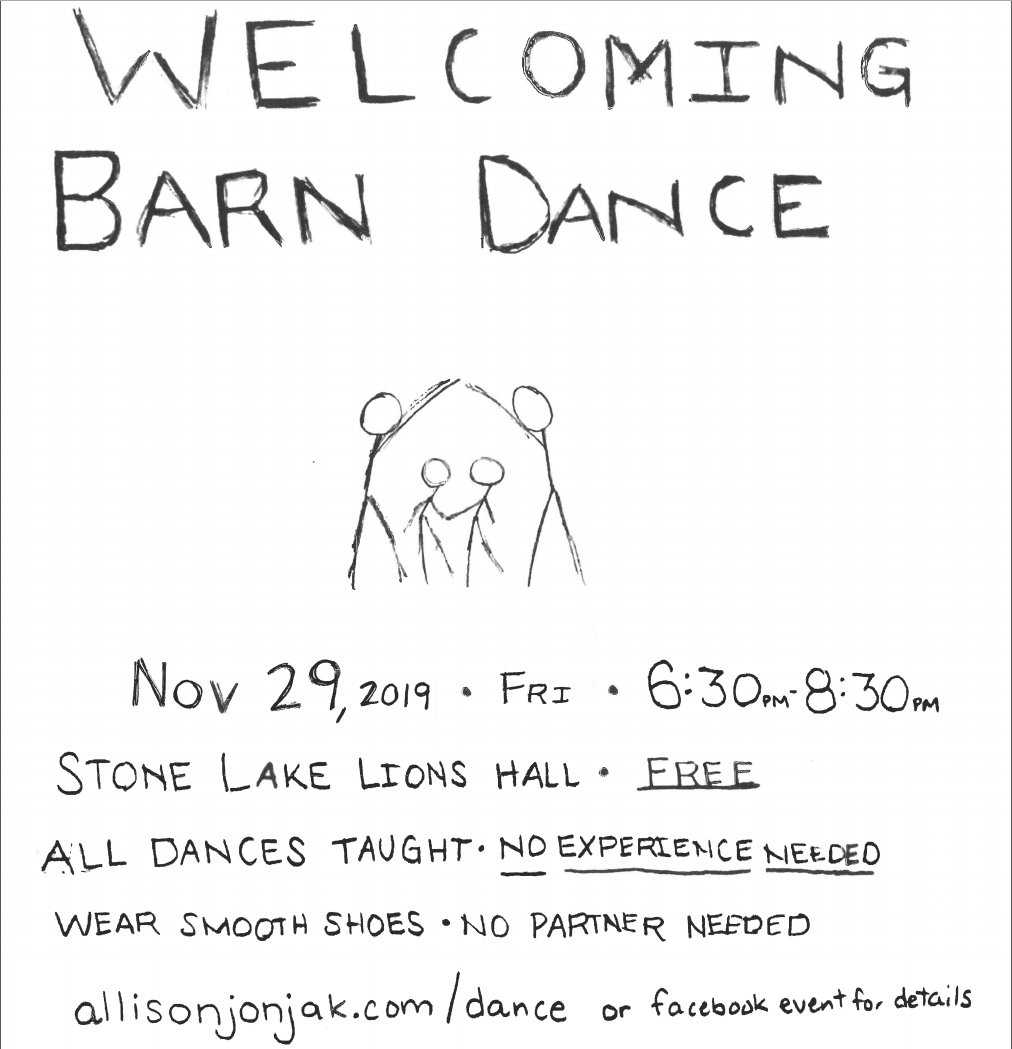 WELCOMING
BARN DANCE
Nov 29, 2019 · FRI · 6:30PM-8:30PM
STONE LAKE LIONS HALL · FREE
ALL DANCES TAUGHT · NO EXPERIENCE NEEDED
WEAR SMOOTH SHOES · NO PARTNER NEEDED
allisonjonjak.com/dance or facebook event for details